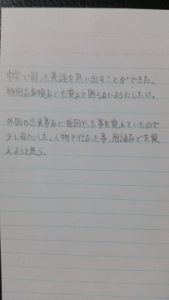 中学で習った英語を思い出すことができた。
特別な表現なども覚えて困らないようにしたい。
外国の出来事など原因や、た事を覚えていたので
少し安心した。人物や行なった事、用語などを覚
えようと思う。